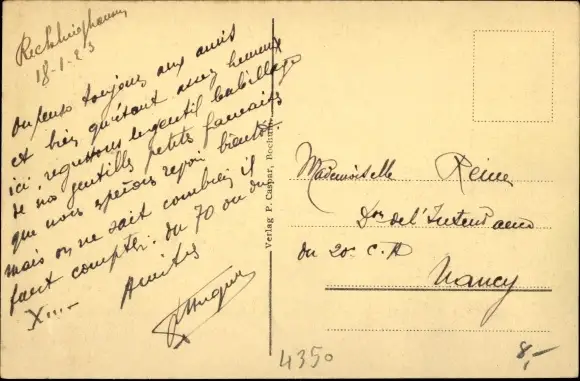 Recklinghausen
18-1-23
On pense toujours aux amis
et bien qu'étant assez heureux
ici, regrettons le gentil babillage
de nos gentilles petites françaises
que nous espérons revoir bientôt.
mais on ne sait combien il
faut compter. du 70 ou du
X....
Amitiés
Verlag P. Caspar, Recklin
Mademoiselle Reine
de l'Intendance
du 20e C. A
Nancy
4350
8,-